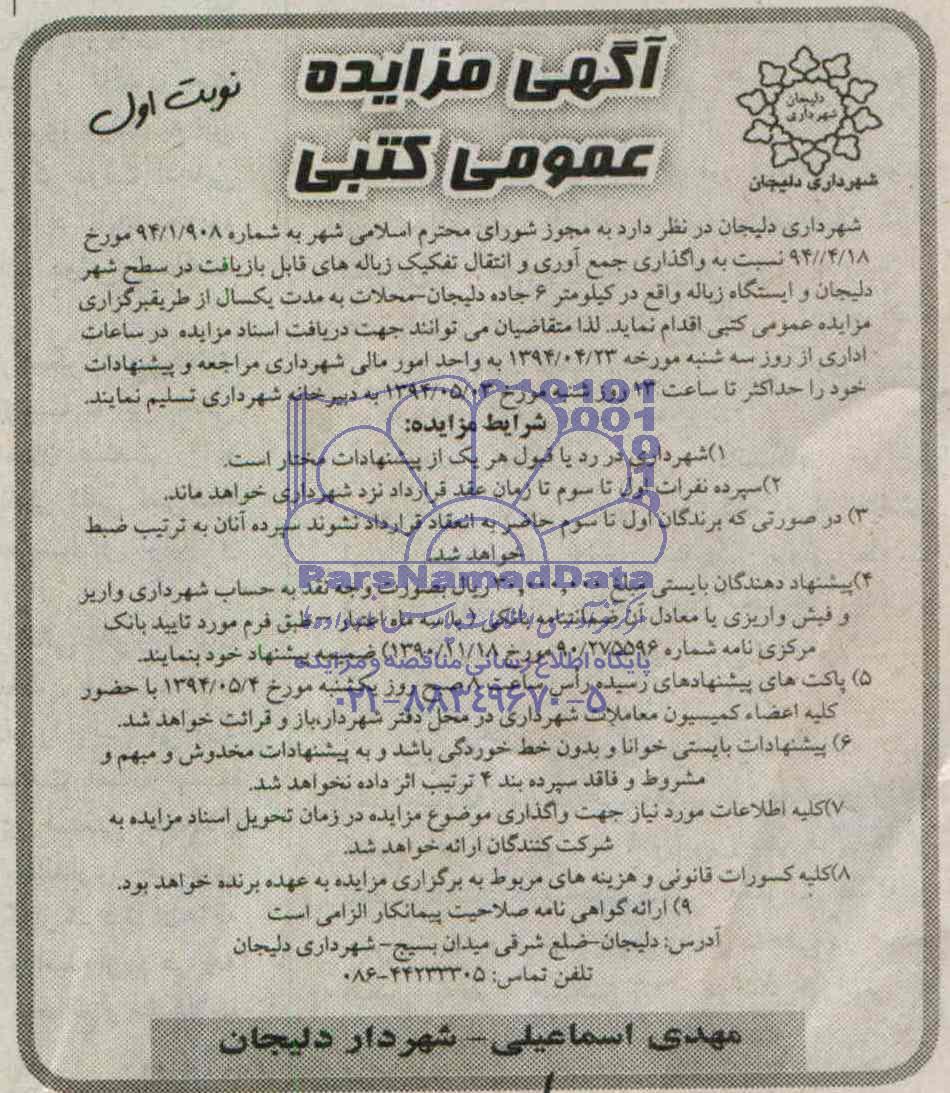 آگهی مزایده
عمومی کتبی
نوبت اول
دلیجان
شهرداری
شهرداری دلیجان
شهرداری دلیجان در نظر دارد به مجوز شورای محترم اسلامی شهر به شماره ۹۴/۱/۹۰۸ مورخ
۹۴//۴/۱۸ نسبت به واگذاری جمع آوری و انتقال تفکیک زباله های قابل بازیافت در سطح شهر
دلیجان و ایستگاه زباله واقع در کیلومتر ۶ جاده دلیجان-محلات به مدت یکسال از طریقبرگزاری
مزایده عمومی کتبی اقدام نماید. لذا متقاضیان می توانند جهت دریافت اسناد مزایده در ساعات
اداری از روز سه شنبه مورخه ۱۳۹۴/۰۴/۲۳ به واحد امور مالی شهرداری مراجعه و پیشنهادات
خود را حداکثر تا ساعت ۱۳ روز شنبه مورخ ۱۳۹۴/۰۵/۰۳ به دبیرخانه شهرداری تسلیم نمایند.
شرایط مزایده:
۱)شهرداری در رد یا قبول هر یک از پیشنهادات مختار است.
۲)سپرده نفرات اول تا سوم تا زمان عقد قرارداد نزد شهرداری خواهد ماند.
۳) در صورتی که برندگان اول تا سوم حاضر به انعقاد قرارداد نشوند سپرده آنان به ترتیب ضبط
خواهد شد.
ParsNamadData
۴)پیشنهاد دهندگان بایستی مبلغ ریال بصورت وجه نقد به حساب شهرداری واریز
و فیش واریزی یا معادل آن ضمانتنامه بانکی ( با سه ماه اعتبار - طبق فرم مورد تایید بانک
مرکزی نامه شماره ۹۰/۲۷۵۵۹۶ مورخ ۱۳۹۰/۱۱/۱۸) ضمیمه پیشنهاد خود بنمایند.
پایگاه اطلاع رسانی مناقصه و مزایده
۵) پاکت های پیشنهادهای رسیده رأس ساعت ۸ صبح روز یکشنبه مورخ ۱۳۹۴/۰۵/۴ با حضور
۰۲۱-۸۸۳۴۹۶۷۰-۵
کلیه اعضاء کمیسیون معاملات شهرداری در محل دفتر شهردار،باز و قرائت خواهد شد.
۶) پیشنهادات بایستی خوانا و بدون خط خوردگی باشد و به پیشنهادات مخدوش و مبهم و
مشروط و فاقد سپرده بند ۴ ترتیب اثر داده نخواهد شد.
۷)کلیه اطلاعات مورد نیاز جهت واگذاری موضوع مزایده در زمان تحویل اسناد مزایده به
شرکت کنندگان ارائه خواهد شد.
۸)کلیه کسورات قانونی و هزینه های مربوط به برگزاری مزایده به عهده برنده خواهد بود.
۹) ارائه گواهی نامه صلاحیت پیمانکار الزامی است
آدرس: دلیجان-ضلع شرقی میدان بسیج- شهرداری دلیجان
تلفن تماس: ۰۸۶-۴۴۲۳۳۳۰۵
مهدی اسماعیلی - شهردار دلیجان